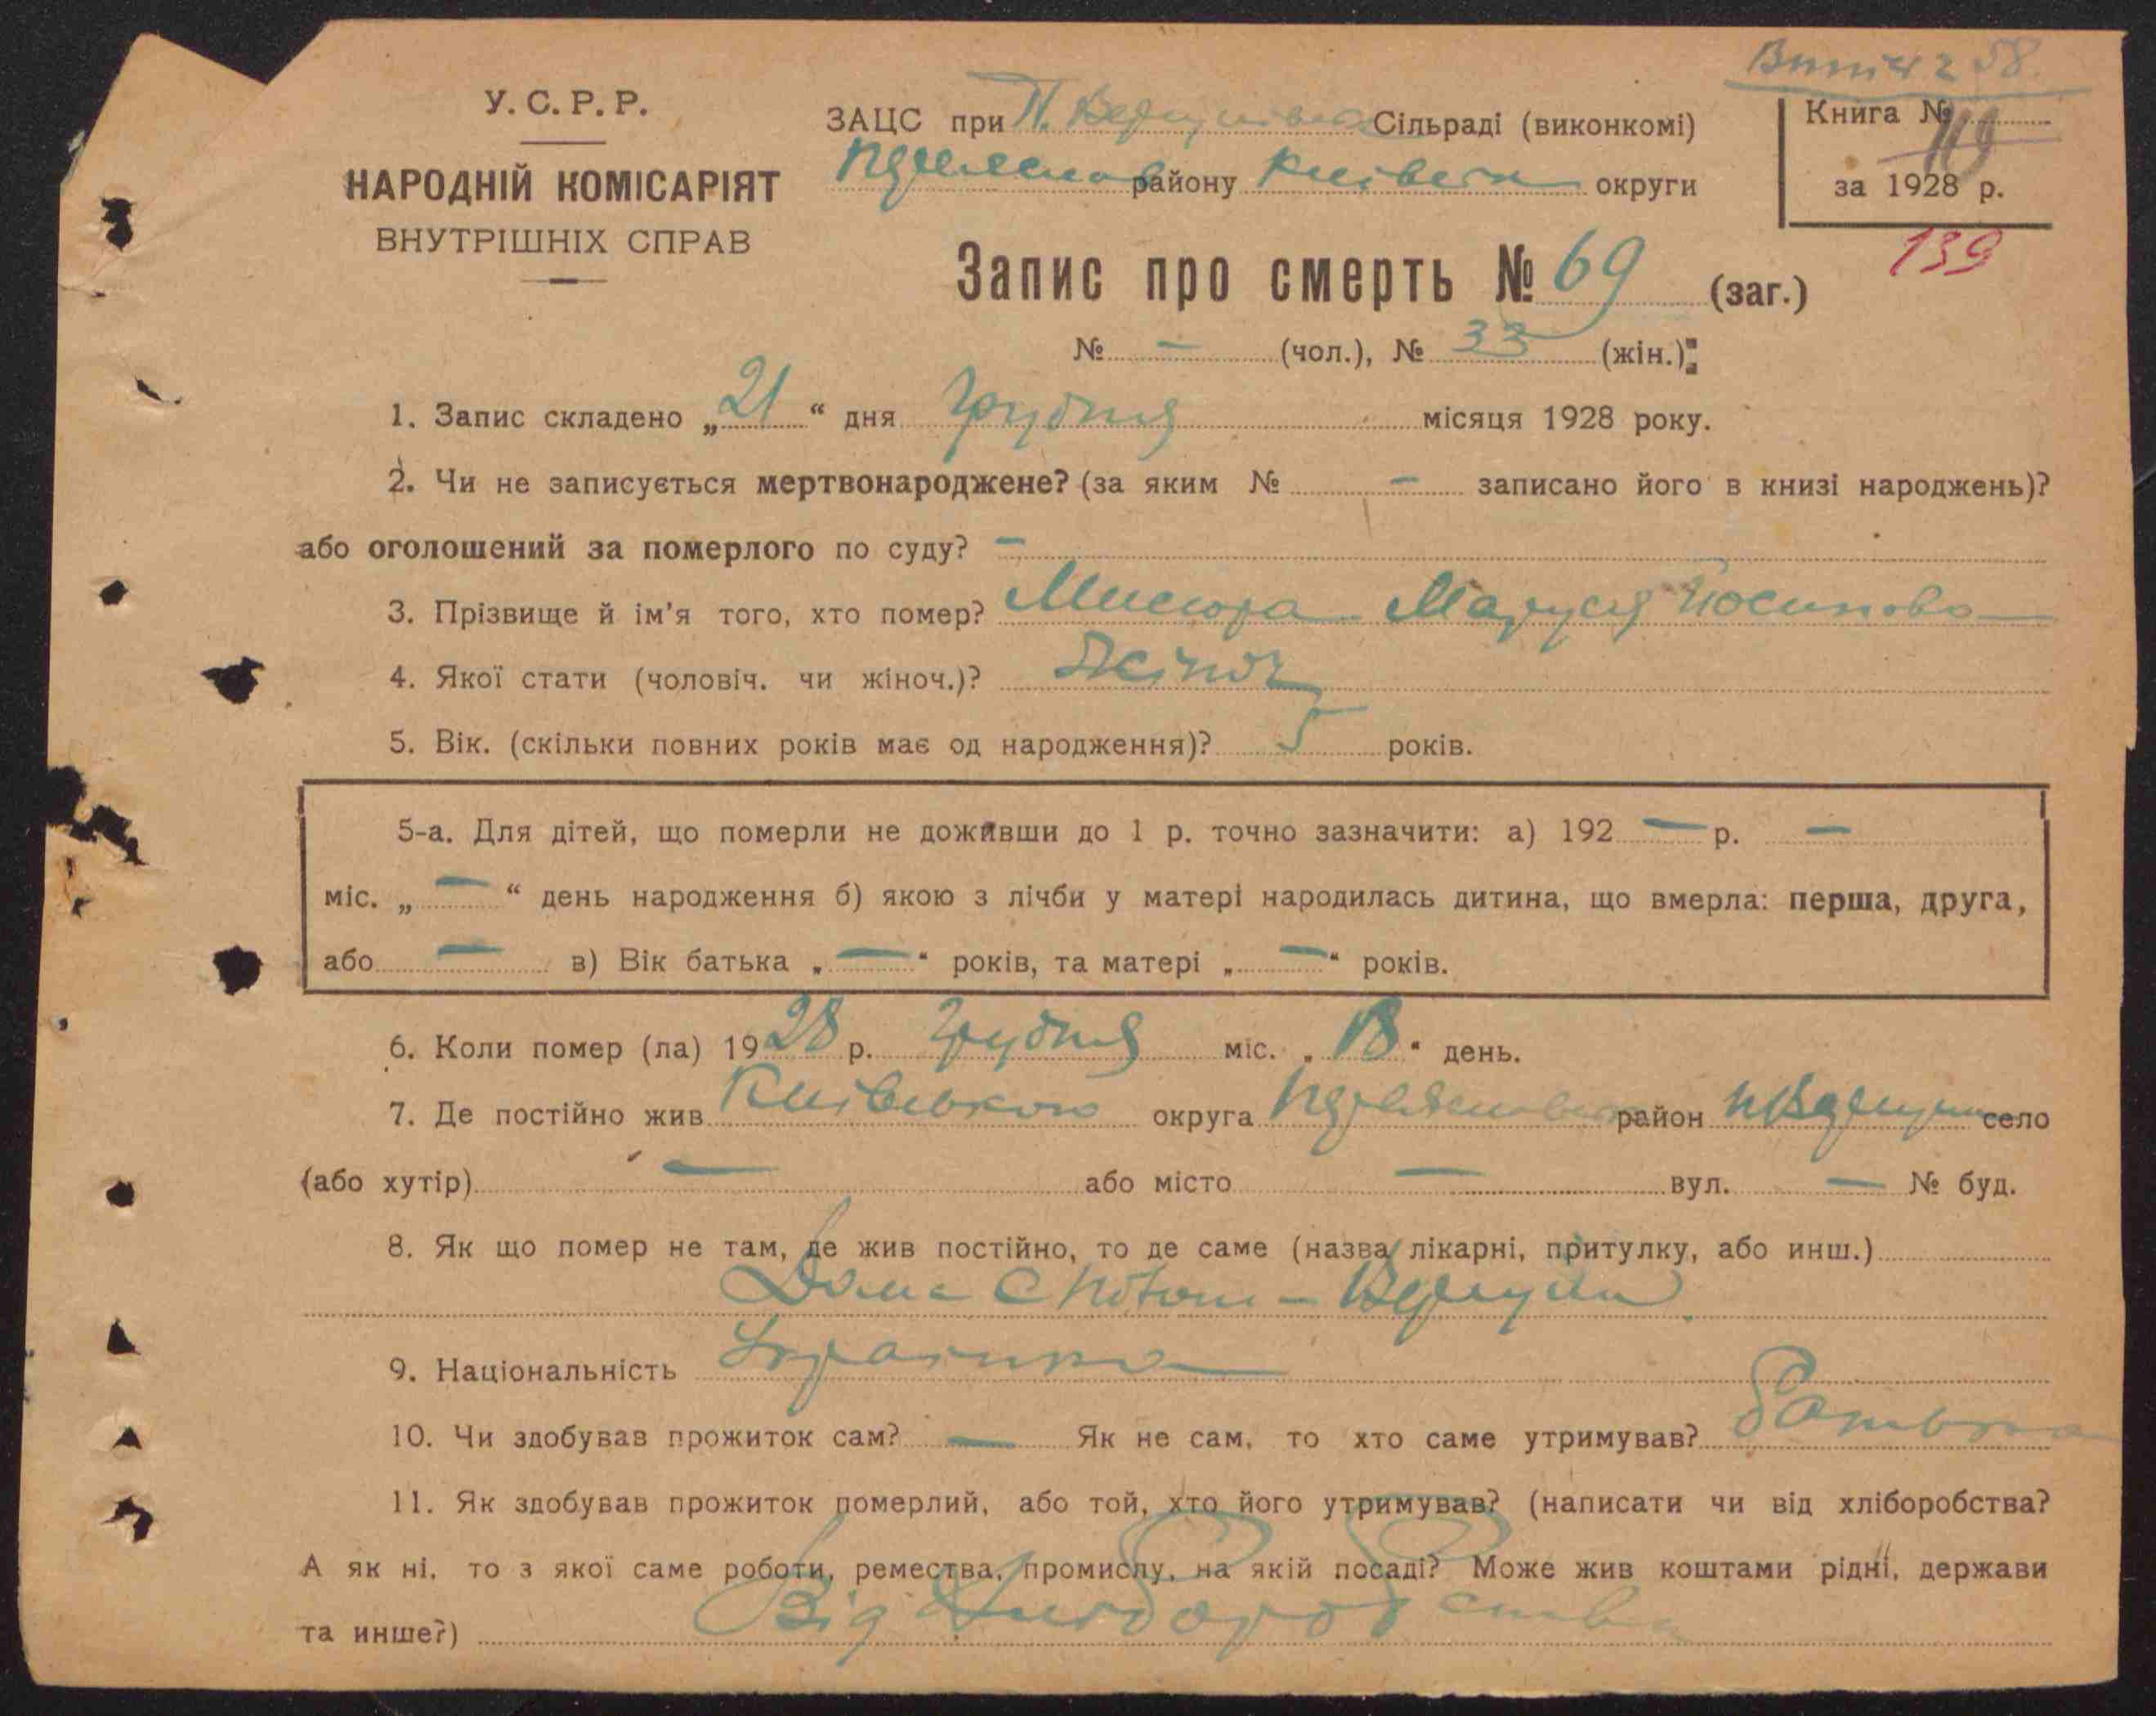 58
У.С.Р.Р.
НАРОДНІЙ КОМІСАРІЯТ
ВНУТРІШНІХ СПРАВ
ЗАЦС при П. Сільраді (виконкомі)
району округи
Книга №
за 1928 р.
139
Запис про смерть № 69 (заг.)
№ — (чол.), № 33 (жін.);
1. Запис складено „21“ дня грудня місяця 1928 року.
2. Чи не записується мертвонароджене? (за яким № — записано його в книзі народжень)?
або оголошений за померлого по суду? —
3. Прізвище й ім'я того, хто помер? Маруся Йосипова
4. Якої стати (чоловіч. чи жіноч.)? Жіноч
5. Вік. (скільки повних років має од народження)? 5 років.
5-а. Для дітей, що померли не доживши до 1 р. точно зазначити: а) 192 — р. —
міс. „—“ день народження б) якою з лічби у матері народилась дитина, що вмерла: перша, друга,
або — в) Вік батька „—“ років, та матері „—“ років.
6. Коли помер (ла) 1928 р. грудня міс. „“ день.
7. Де постійно жив Київської округа район село
(або хутір) — або місто — вул. — № буд.
8. Як що помер не там, де жив постійно, то де саме (назва лікарні, притулку, або инш.)
Дома
9. Національність Українка
10. Чи здобував прожиток сам? — Як не сам, то хто саме утримував? Батько
11. Як здобував прожиток померлий, або той, хто його утримував? (написати чи від хліборобства?
А як ні, то з якої саме роботи, ремества, промислу, на якій посаді? Може жив коштами рідні, держави
та инше?) Від Хліборобства